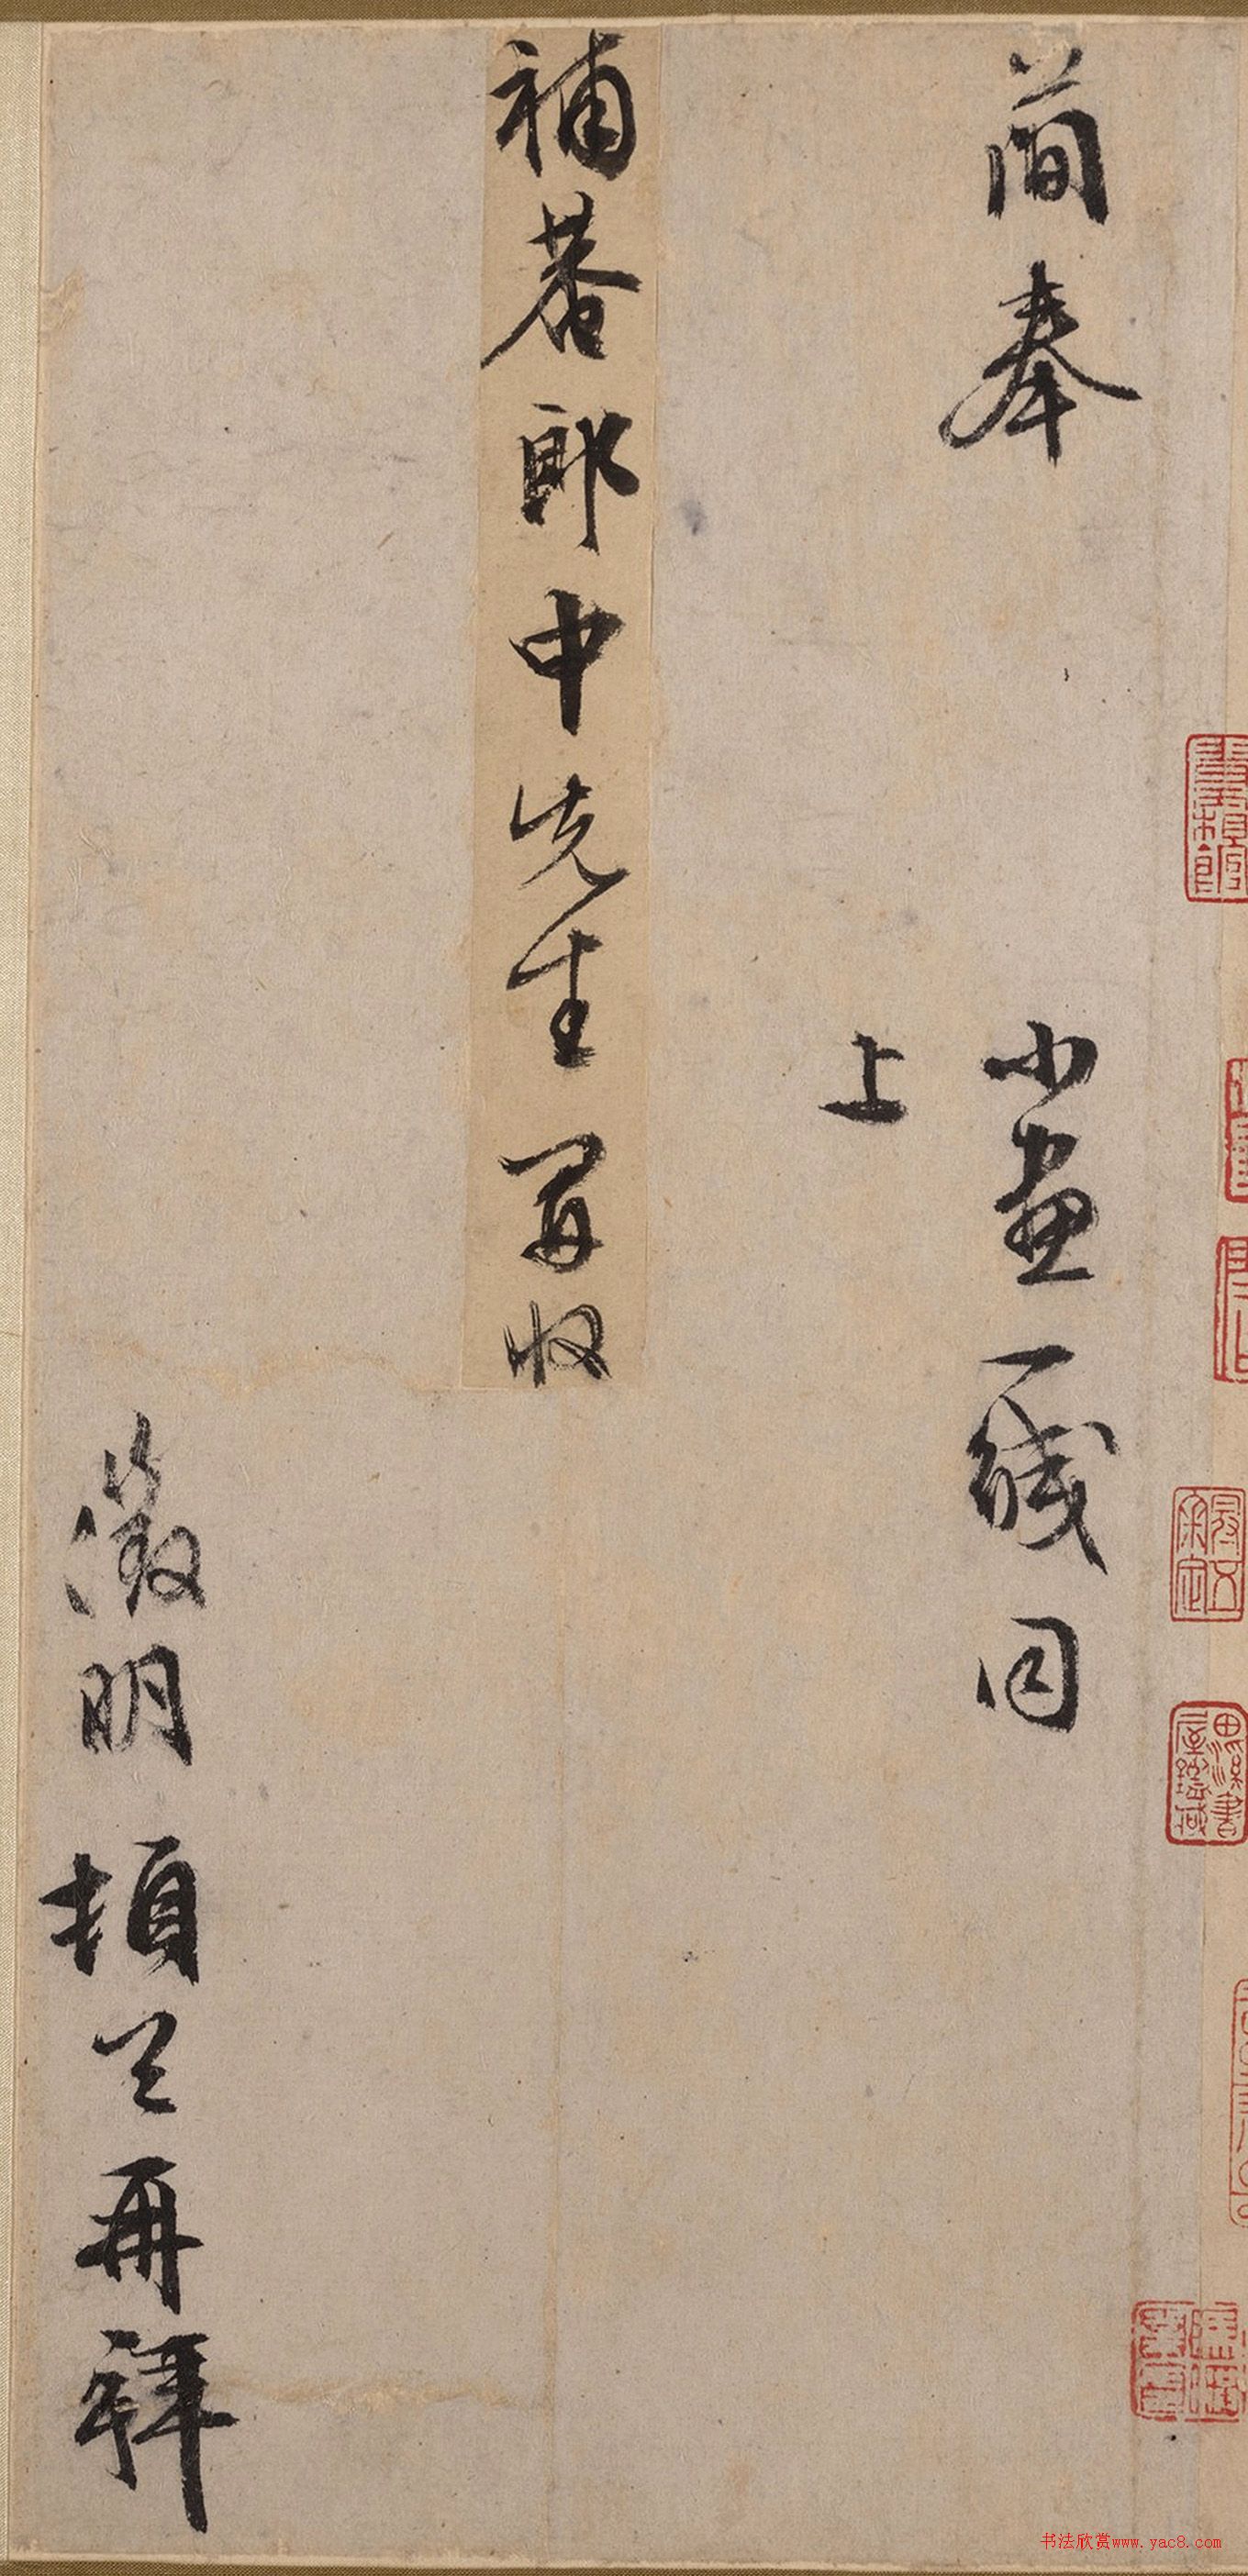 簡奉
小畫一綫同
上
補菴郎中先生 開收
徵明頓首再拜
书法欣赏www.yac8.com